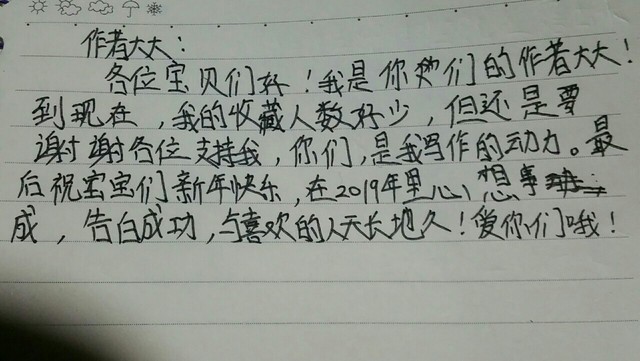 作者大大：
各位宝贝们好！我是你她们的作者大大！
到现在，我的收藏人数好少，但还是要
谢谢各位支持我，你们，是我写作的动力。最
后祝宝宝们新年快乐，在2019年里心想事
成，告白成功，与喜欢的人天长地久！爱你们哦！